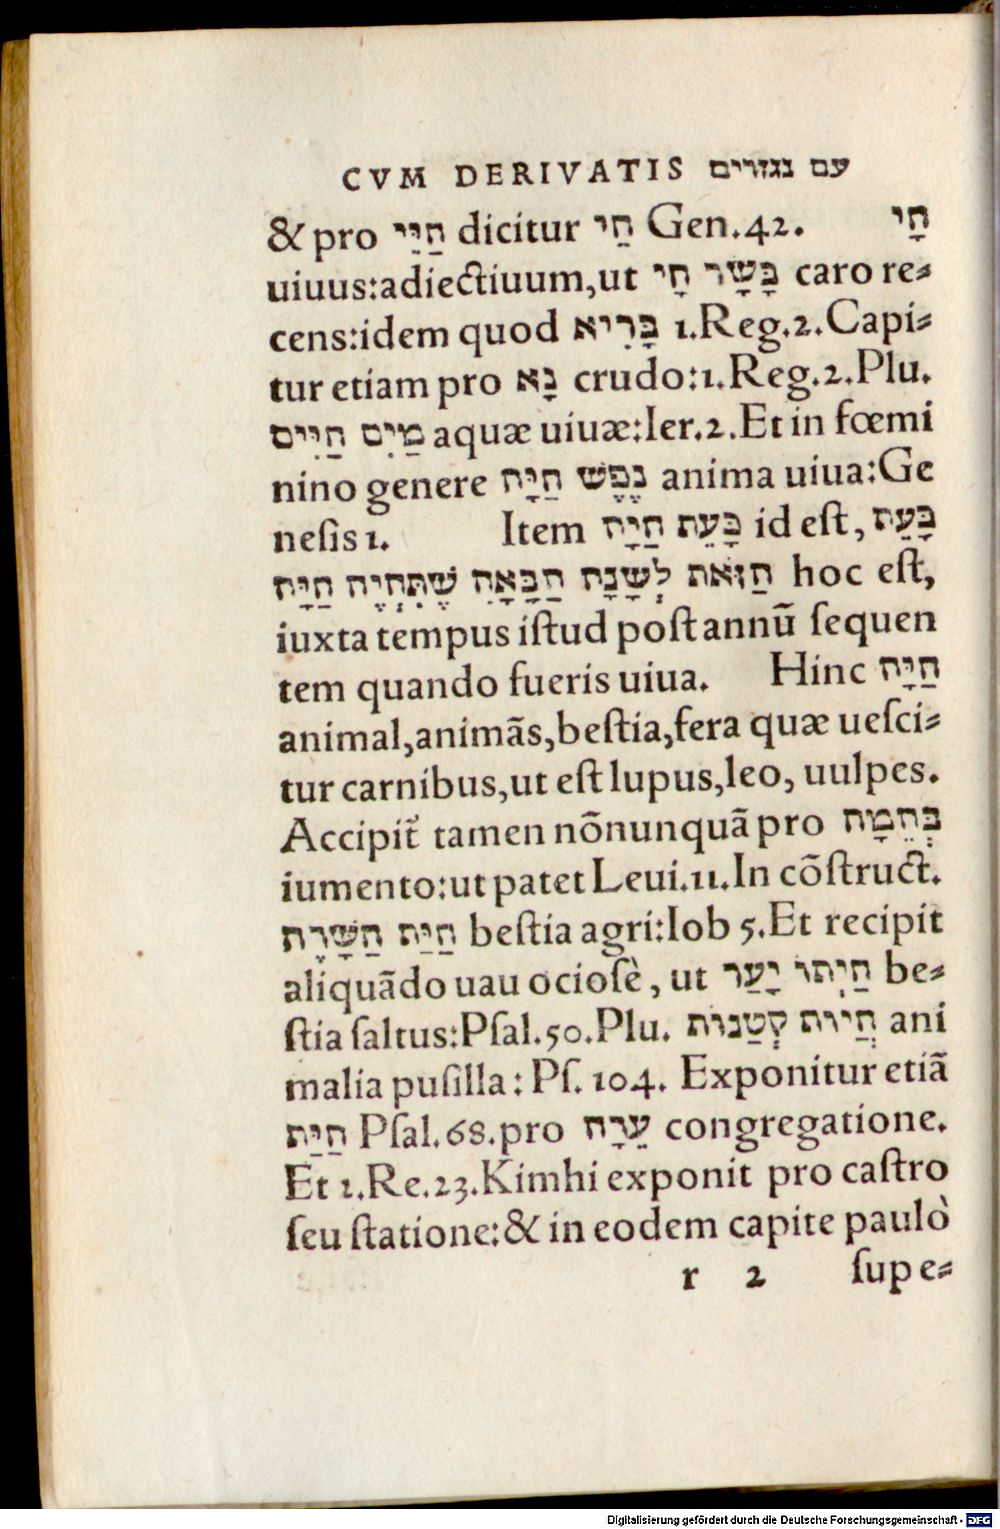 CVM DERIVATIS עם נגזרים
& pro חַיֵי dicitur חֵי Gen.42. חָי
uiuus:adiectiuum,ut בָּשָׂר חָי caro re⸗
cens:idem quod בָּרִיא 1.Reg.2.Capi⸗
tur etiam pro נָא crudo:1.Reg.2.Plu.
מַיִם חַיִּים aquæ uiuæ:Ier.2.Et in fœmi
nino genere נֶפֶשׁ חַיָּה anima uiua:Ge
neſis 1. Item כָּעֵת חַיָּה id eſt, כָּעֵת
הַזֹּאת לְשָׁנָה הַבָּאָה שֶׁתִּהְיֶה חַיָּה hoc eſt,
iuxta tempus iſtud poſt annũ ſequen
tem quando fueris uiua. Hinc חַיָּה
animal,animãs,beſtia,fera quæ ueſci⸗
tur carnibus,ut eſt lupus,leo, uulpes.
Accipit̃ tamen nõnunquã pro בְּהֵמָה
iumento:ut patet Leui.11.In cõſtruct.
חַיַּת הַשָּׂדֶה beſtia agri:Iob 5.Et recipit
aliquãdo uau ocioſè, ut חַיְתוֹ יָעַר be⸗
ſtia ſaltus:Pſal.50.Plu. חֲיוֹת קְטַנּוֹת ani
malia puſilla: Pſ. 104. Exponitur etiã
חַיַּת Pſal.68.pro עֵדָה congregatione.
Et 1.Re.23.Kimhi exponit pro caſtro
ſeu ſtatione:& in eodem capite paulò
r 2 ſupe⸗
Digitalisierung gefördert durch die Deutsche Forschungsgemeinschaft - DFG